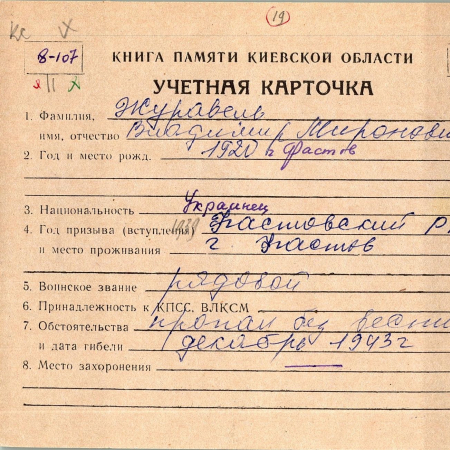 19
8-107
КНИГА ПАМЯТИ КИЕВСКОЙ ОБЛАСТИ
УЧЕТНАЯ КАРТОЧКА
1. Фамилия, Журавель
имя, отчество Владимир Миронови
2. Год и место рожд. 1920 г Фастов
3. Национальность Украинец
4. Год призыва (вступления) 1939 Фастовский Р
и место проживания г Фастов
5. Воинское звание рядовой
6. Принадлежность к КПСС, ВЛКСМ
7. Обстоятельства пропал без вести
и дата гибели декабрь 1943 г
8. Место захоронения